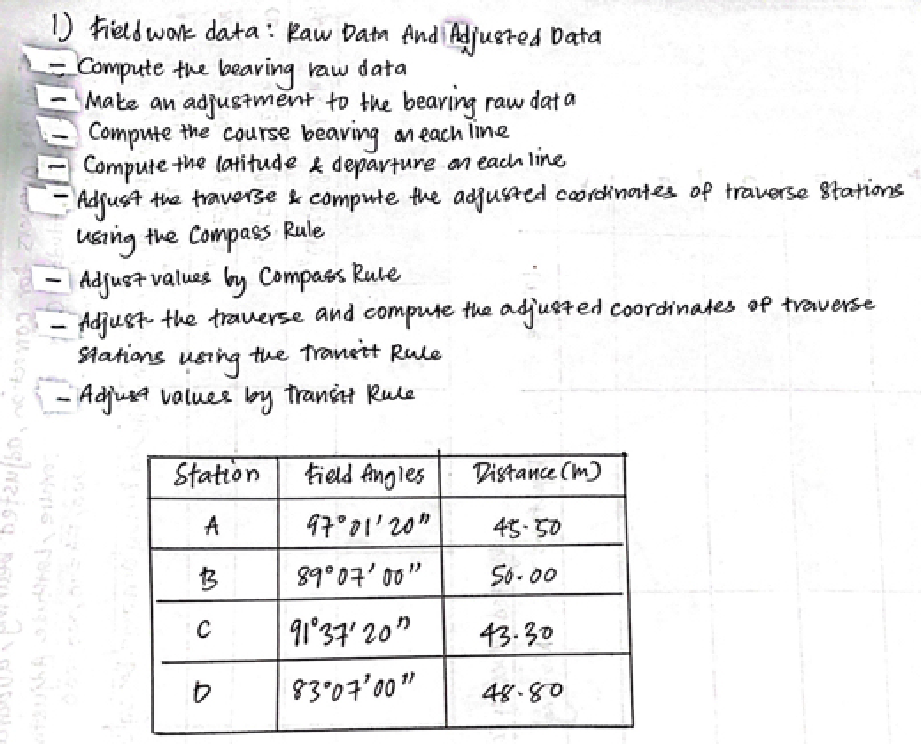 1) Fieldwork data: Raw Data And Adjusted Data
- Compute the bearing raw data
- Make an adjustment to the bearing raw data
- Compute the course bearing on each line
- Compute the latitude & departure on each line
- Adjust the traverse & compute the adjusted coordinates of traverse Stations
using the Compass Rule
- Adjust values by Compass Rule
- Adjust the traverse and compute the adjusted coordinates of traverse
Stations using the Transit Rule
- Adjust values by Transit Rule
Station Field Angles Distance (m)
A 97°01'20" 45.50
B 89°07'00" 50.00
C 91°37'20" 43.30
D 83°07'00" 48.80